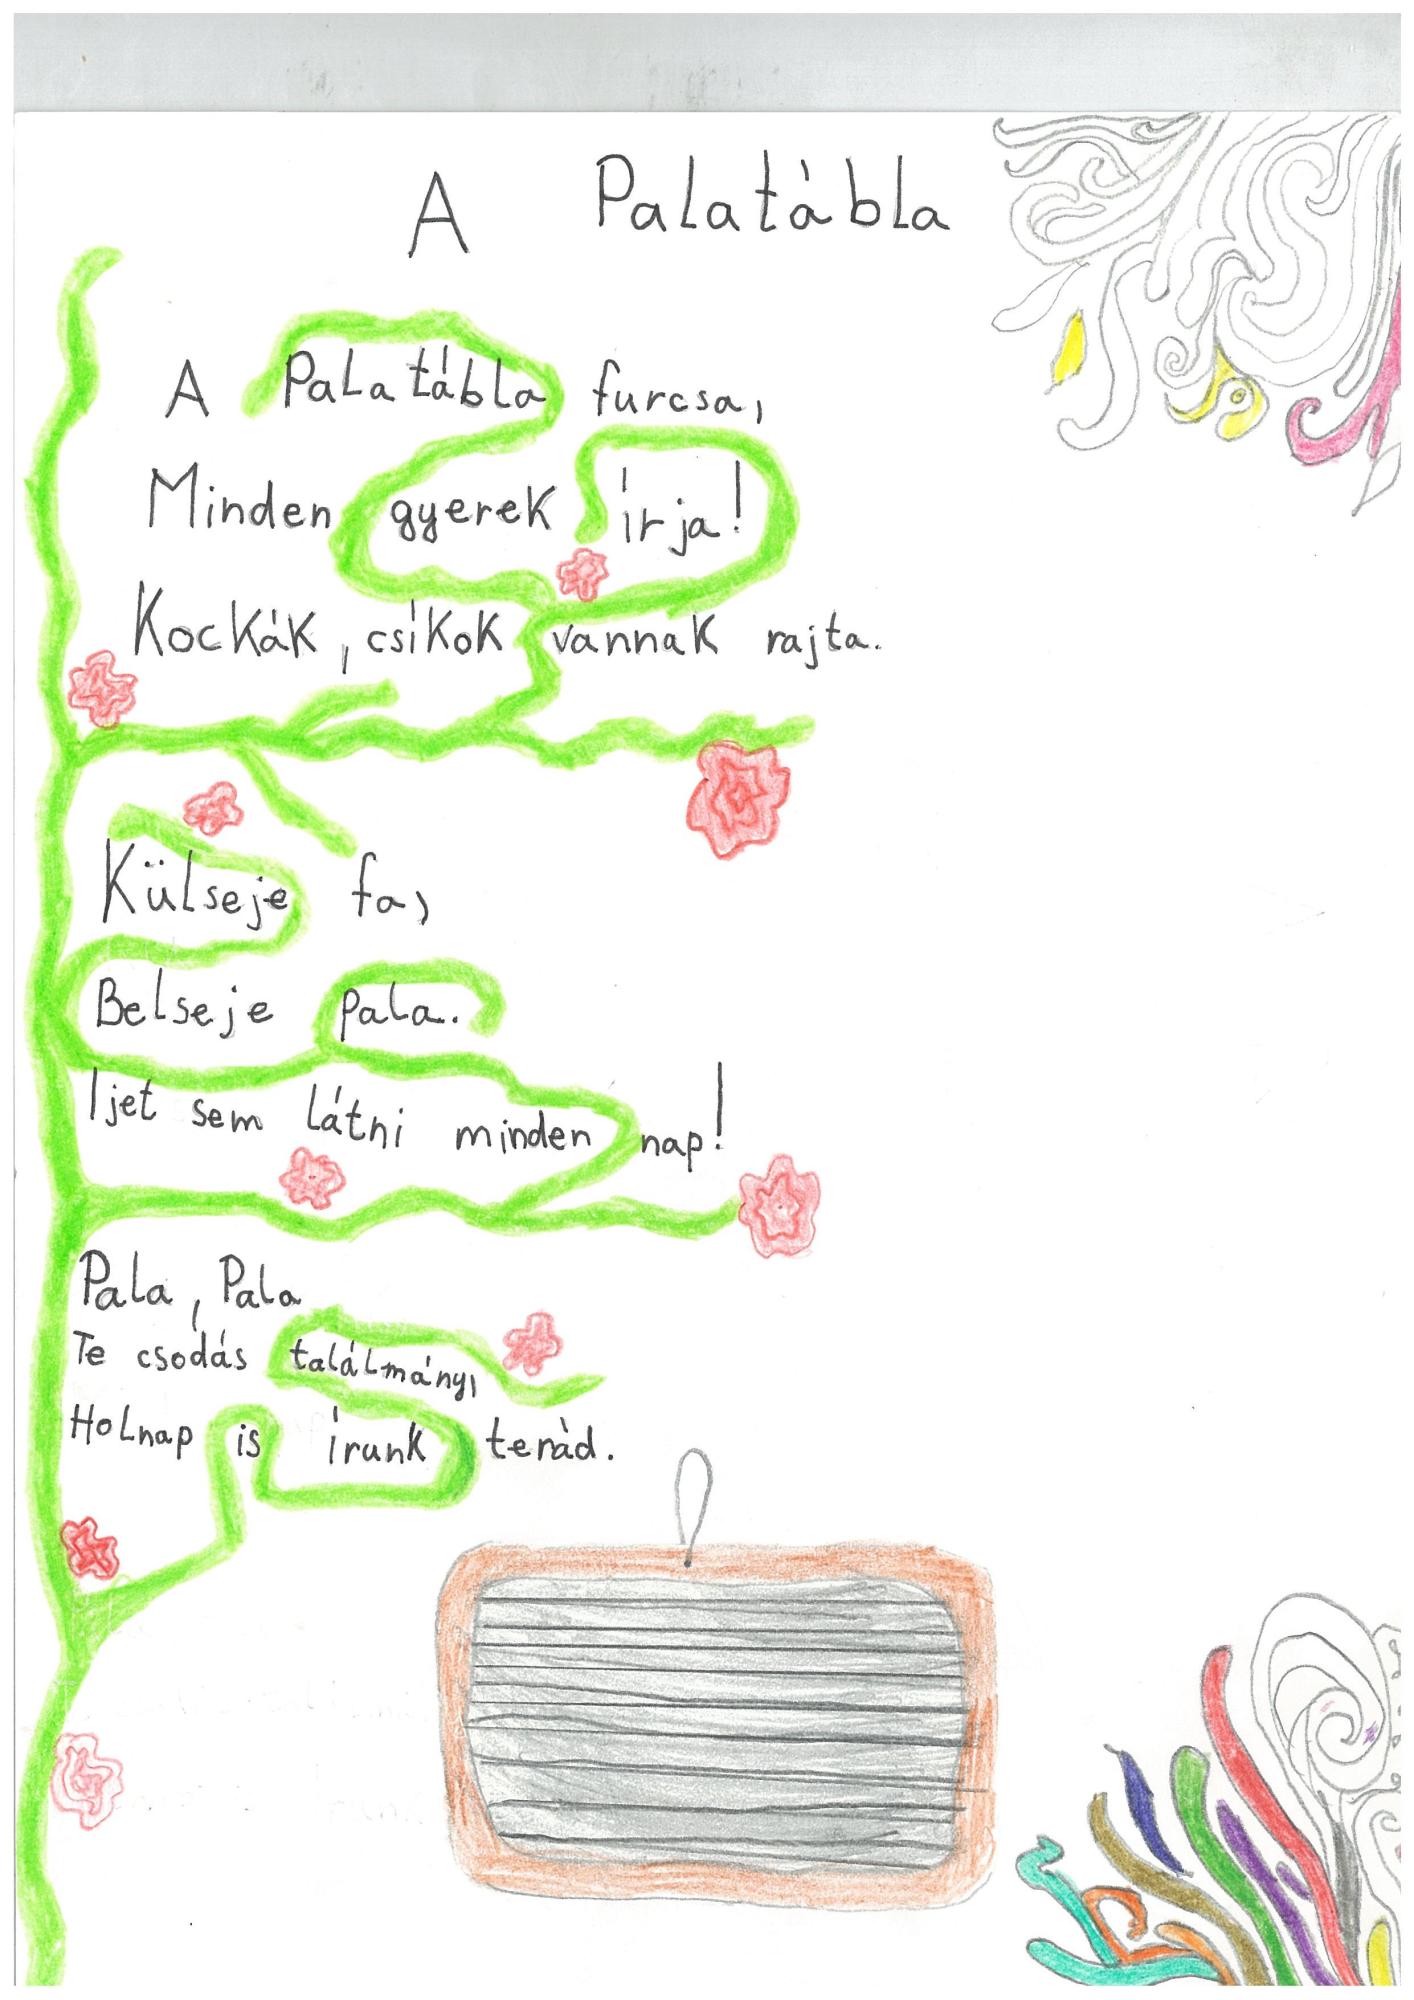 A Palatábla
A Palatábla furcsa,
Minden gyerek írja!
Kockák, csíkok vannak rajta.
Külseje fa,
Belseje pala.
Ijet sem látni minden nap!
Pala, Pala
Te csodás találmány,
Holnap is írunk terád.